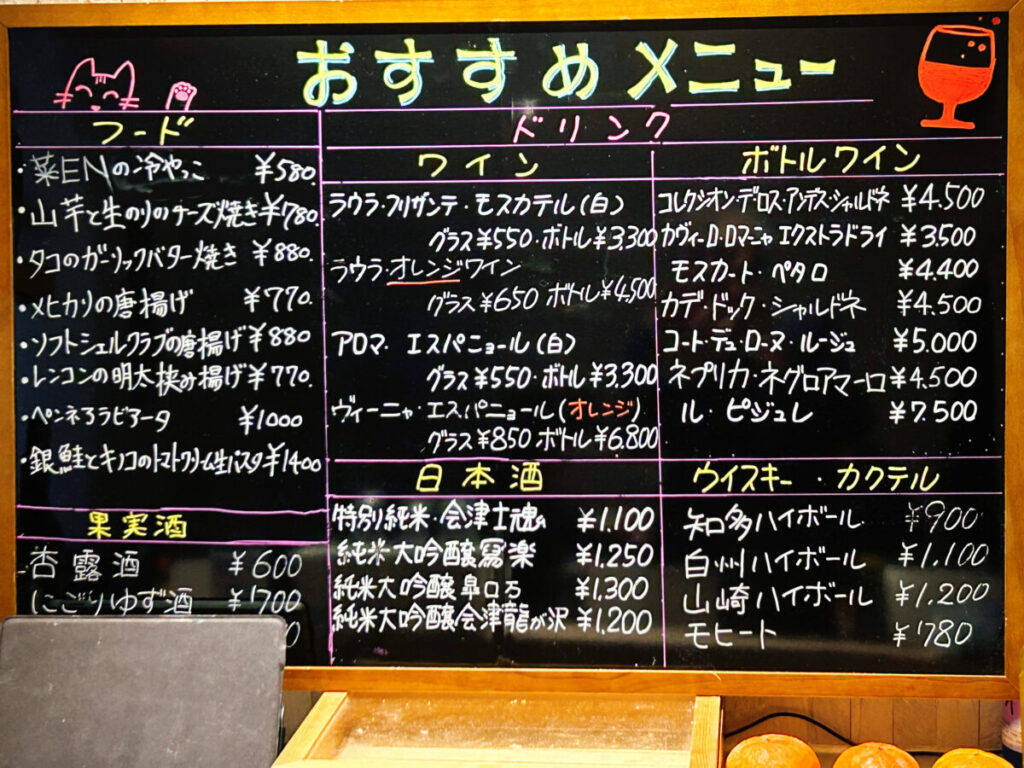 おすすめメニュー
フード
・菜ENの冷やっこ ¥580.
・山芋と生のりのチーズ焼き ¥780.
・タコのガーリックバター焼き ¥880.
・メヒカリの唐揚げ ¥770.
・ソフトシェルクラブの唐揚げ ¥880
・レンコンの明太挟み揚げ ¥770.
・ペンネアラビアータ ¥1000
・銀鮭とキノコのトマトクリーム生パスタ ¥1400
果実酒
杏露酒 ¥600
にごりゆず酒 ¥700
ドリンク
ワイン
ラウラ・フリザンテ・モスカテル(白)
グラス¥550・ボトル¥3,300
ラウラ・オレンジワイン
グラス¥650 ボトル¥4,500
アロマ・エスパニョール(白)
グラス¥550・ボトル¥3,300
ヴィーニャ・エスパニョール(オレンジ)
グラス¥850 ボトル¥6.800
ボトルワイン
コレクシオン・デ・ロス・アンデス・シャルドネ ¥4.500
カヴィー・ロ・ロマニャ エクストラドライ ¥3.500
モスカート・ペタロ ¥4.400
カデ・ドック・シャルドネ ¥4.500
コート・デュ・ローヌ・ルージュ ¥5.000
ネプリカ・ネグロアマーロ ¥4.500
ル・ピジュレ ¥7.500
日本酒
特別純米・会津士魂 ¥1.100
純米大吟醸 寫楽 ¥1.250
純米大吟醸 皐ロ万 ¥1.300
純米大吟醸 会津龍が沢 ¥1.200
ウイスキー・カクテル
知多ハイボール ¥900
白州ハイボール ¥1.100
山崎ハイボール ¥1.200
モヒート ¥780